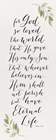 for God
so loved
the World,
that He gave
His only Son
that whoever
believes in
Him shall
not perish
but have
eternal
life